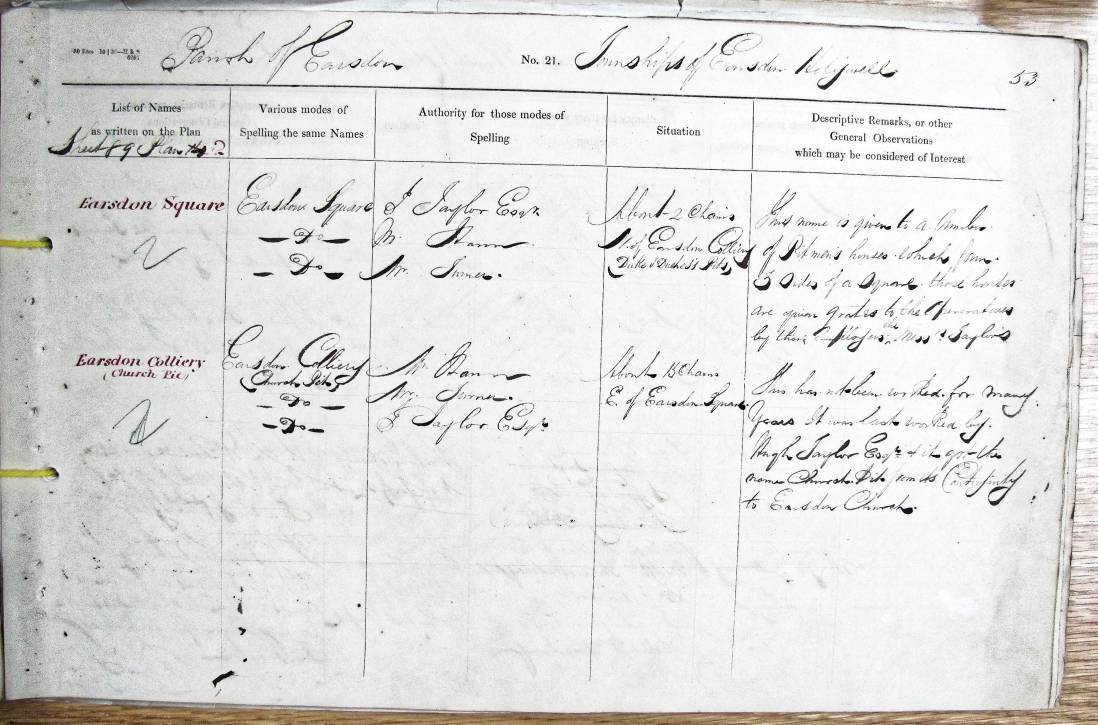 Parish of Earsdon
No. 21.
Townships of Earsdon Holywell
53
List of Names
as written on the Plan
Sheet 89 Plan No 2
Various modes of
Spelling the same Names
Authority for those modes of
Spelling
Situation
Descriptive Remarks, or other
General Observations
which may be considered of Interest
Earsdon Square
Earsdon Square
Do
Do
J Taylor Esqr
Mr. Hann
Mr. Turner.
About 2 Chains
N. of Earsdon Colliery
(Duke & Duchess Pits)
This name is given to a Number
of Pitmen's houses which form
3 sides of a Square those houses
are given gratis to the Operatives
by their the Messrs. Taylors
Earsdon Colliery
(Church Pit)
Earsdon Colliery
(Church Pit)
Do
Do
Mr. Hann
Mr. Turner.
J Taylor Esqr
About 13 Chains
E. of Earsdon Square
This has not been worked for many
Years It was last worked by
Hugh Taylor Esqr & it got the
name Church Pit from its Contiguity
to Earsdon Church.